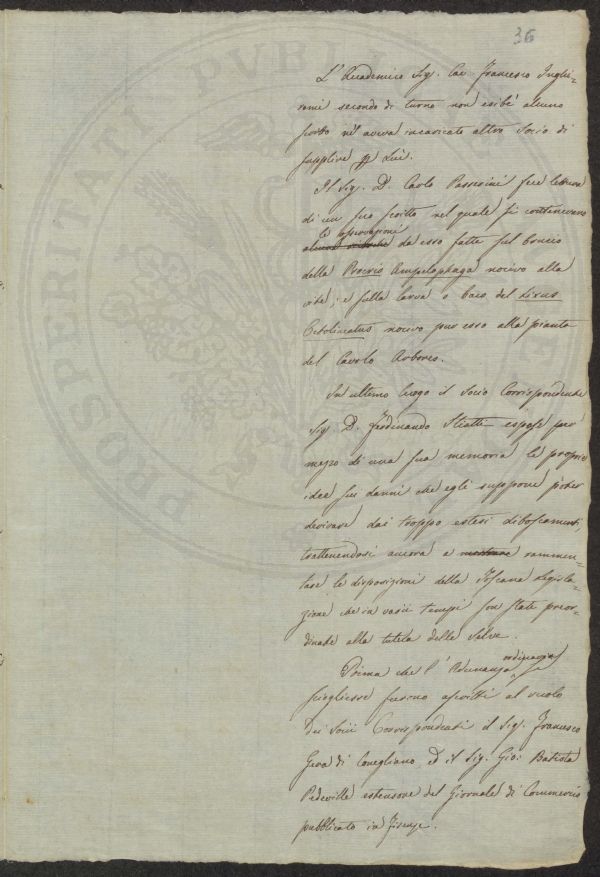 36
L'Accademico Sig. Cav. Francesco Inghi-
rami secondo di turno non esibì alcuno
scritto nè aveva incaricato altro Socio di
supplire p Lui.
Il Sig. D. Carlo Passerini fece lettura
di un suo scritto nel quale si contenevano
le osservazioni
alcune da esso fatte sul bruco
della Procris Ampelophaga nocivo alla
vite, e sulla larva o baco del Lixus
Octolineatus nocivo pur esso alla pianta
del Cavolo Arboreo.
In ultimo luogo il Socio Corrispondente
Sig. D. Ferdinando espose per
mezzo di una sua memoria le proprie
idee sui danni che egli suppone poter
derivare dai troppo estesi diboscamenti,
trattenendosi ancora a mostrare rammen-
tare le disposizioni della Toscana Legisla-
zione che in varii tempi son state preor-
dinate alla tutela delle Selve.
ordinaria
Prima che l'Adunanza
sciogliesse furono ascritti al ruolo
Dei Socii Corrispondenti il Sig. Francesco
Gera di Conegliano, D il Sig. Gio: Batista
Pedeville estensore del Giornale di Commercio
pubblicato in Firenze.
PROSPERITATI PVBLICAE